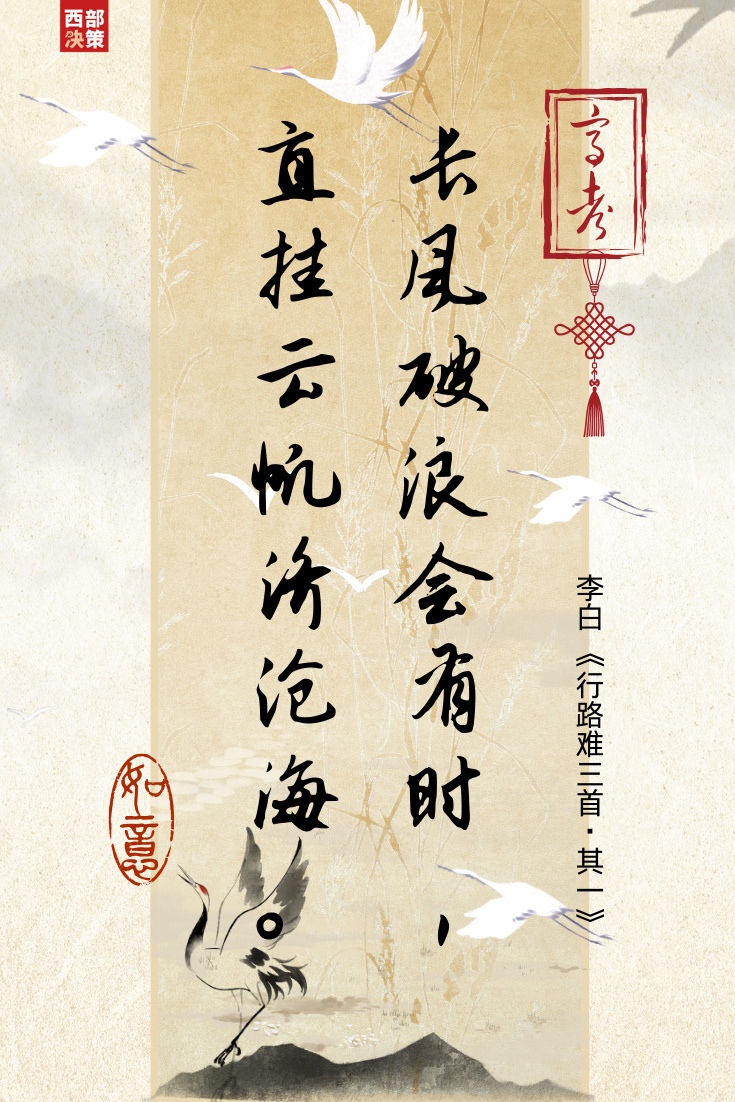 西部
决策
高考
长风破浪会有时，
直挂云帆济沧海。
李白《行路难三首·其一》
如意